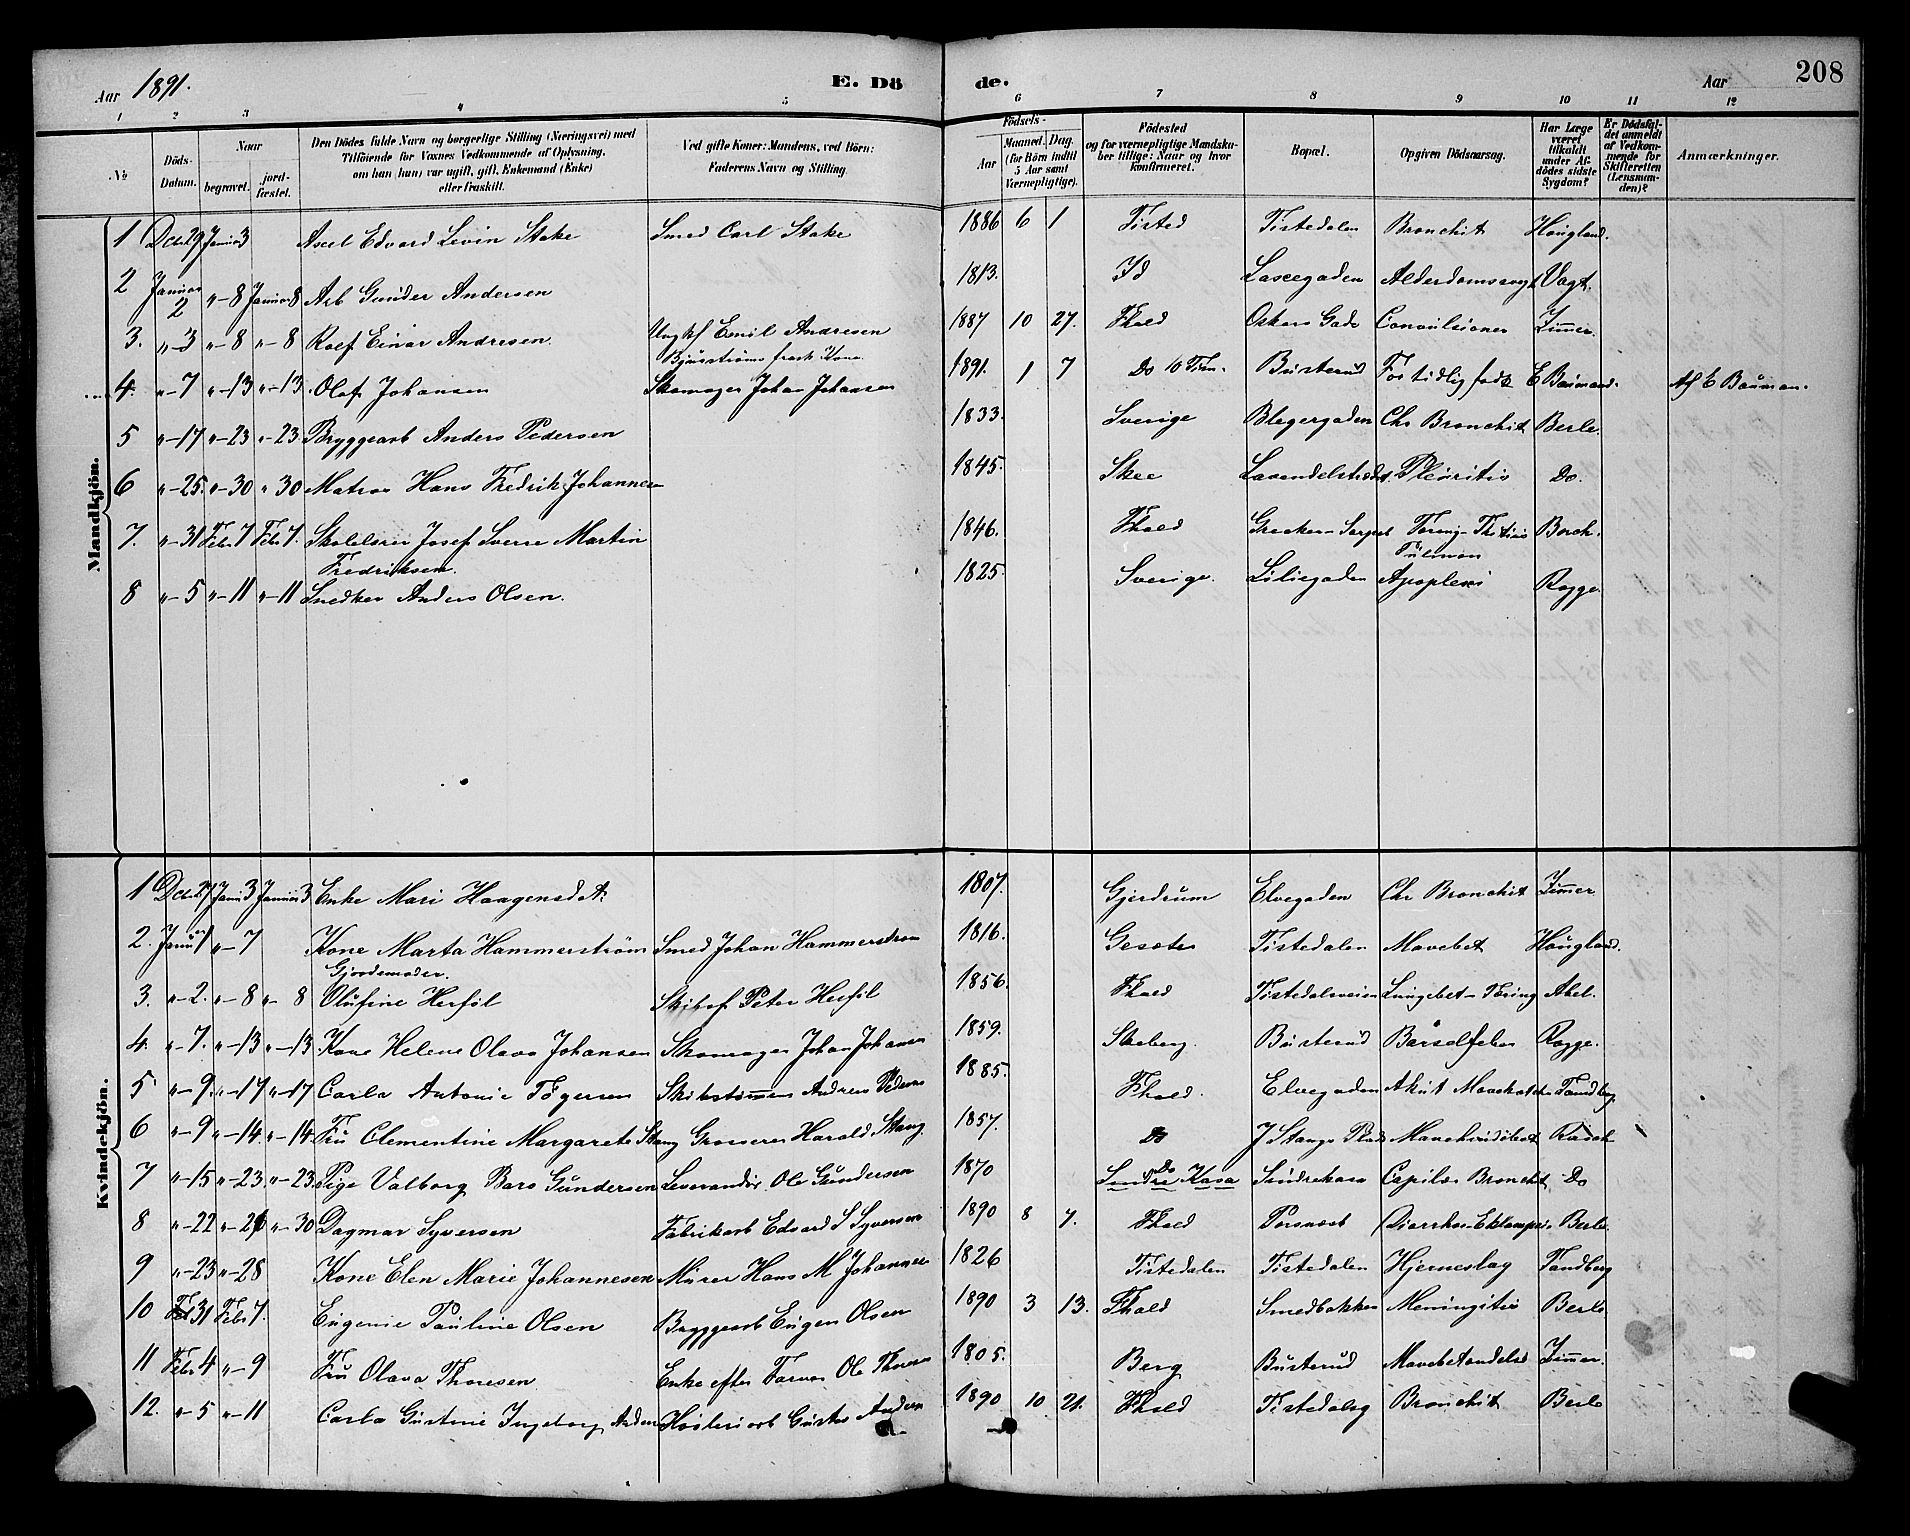 Aar 1891. E. Dö de. Aar 208
1 2 3 4 5 6 7 8 9 10 11 12
No
Döds-Datum.
Naar begravet. jord-fæstet.
Den Dödes fulde Navn og borgerlige Stilling (Næringsvei) med Tilföiende for Voxnes Vedkommende af Oplysning, om han (hun) var ugift, gift, Enkemand (Enke) eller fraskilt.
Ved gifte Koner: Mandens, ved Börn: Faderens Navn og Stilling.
Födsels-
Aar Maaned. Dag. (for Börn indtil 5 Aar samt Værnepligtige).
Födested og for værnepligtige Mandska-ber tillige: Naar og hvor konfirmeret.
Bopæl.
Opgiven Dödsaarsag.
Har Læge været tilkaldt under Af-dödes sidste Sygdom?
Er Dödsfal-det anmeldt af Vedkom-mende for Skifteretten (Lensman-den)?
Anmærkninger.
Mandkjön.
1 Dcbr 29 Januar 3 Axel Edvard Levin Stake Smed Carl Stake 1886 6 1 Tisted Tistedalen Bronchit Hougland.
2 Januar 2 "-8 Januar 8 Arb Gunder Andersen 1813. Id Lassegaden Alderdomssvagt Vogt.
3. "-3 "-8 "-8 Rolf Einar Andresen. Ungkf Emil Andresen 1887 10 27. Fhald Oskars Gade Convulsioner Zimmer.
Bjusströms frask Kone.
4. "-7 "-13 "-13 Olaf Johansen Skomager Johan Johansen 1891. 1 7 Do 10 Tim. Busterud For tidlig født E Baumand. Af E Bauman.
5 "-17 "-23 "-23 Bryggearb Anders Pedersen 1833. Sverige Blegergaden Chr Bronchit Berle.
6 "-25. "-30 "-30 Matros Hans Fredrik Johannesen 1845. Skee Lavendelstrædet. Pleuritis Do.
7. "-31 Febr 7 Febr 7. Skolelærer Josef Sverre Martin 1846. Fhald Grecker-Sarpet Tæring-Thitisis Borch.
Fredriksen. Pulmon
8 "-5 "-11 "-11 Snedker Anders Olsen. 1825. Sverige. Liliegaden Apoplexi Rogge.
Kvindekjön.
1 Dcbr 27 Januar 3 Januar 3 Enke Mari Haagensdat. 1807. Gjerdrum Elvegaden Chr Bronchit Zimmer
2. Januar 1 "-7 Kone Marta Hammerström Smed Johan Hammerström 1816. Gesæter Tistedalen Mavebet Hougland.
Gjordemoder.
3. "-2. "-8 "-8 Olufine Herföl Skibsf Peter Herföl 1856. Fhald Tistedalsveien Lungebet-Tæring Abel.
4. "-7. "-13 "-13. Kone Helene Olava Johansen Skomager Johan Johansen 1859. Skeberg. Busterud Barselfeber Rogge.
5 "-9. "-17 "-17 Carla Antonie Tögersen Skibstömmer Andreas Pedersen 1885. Fhald. Elvegaden Akut Mavekatar Tandberg
6 "-9 "-14. "-14. Fru Clementine Margarete Stang Grosserer Harald Stang. 1857. Do J Stangs Plads Mavehindebet Rasch
7 "-15 "-23 "-23 Pige Valborg Bars Gundersen Leverandör. Ole Gundersen 1870 Do Söndre Kasa Söndrekasa Capilær Bronchit Do
8 "-22 "-26 "-30 Dagmar Syversen Fabrikarb Edvard S Syversen 1890 8 7. Fhald Porsnæs Diarrhoe-Eklampsi. Berle
9 "-23 "-28 Kone Elen Marie Johannesen Murer Hans M Johannesen 1826 Tistedalen Tistedalen Hjerneslag Tandberg
10 31 Febr 7. Eugenie Pauline Olsen Bryggearb Eugen Olsen 1890 3 13. Fhald Smedbakken Meningitis Berle
11 Febr 4 "-9 Fru Olava Thoresen. Enke efter Farver Ole Thoresen 1805. Berg Busterud Mavebetændelse Zimmer.
12. "-5 "-11 Carla Gustine Ingeborg Andersen Gustav Andersen 1890 10 21. Fhald Tistedalg Bronchit Berle